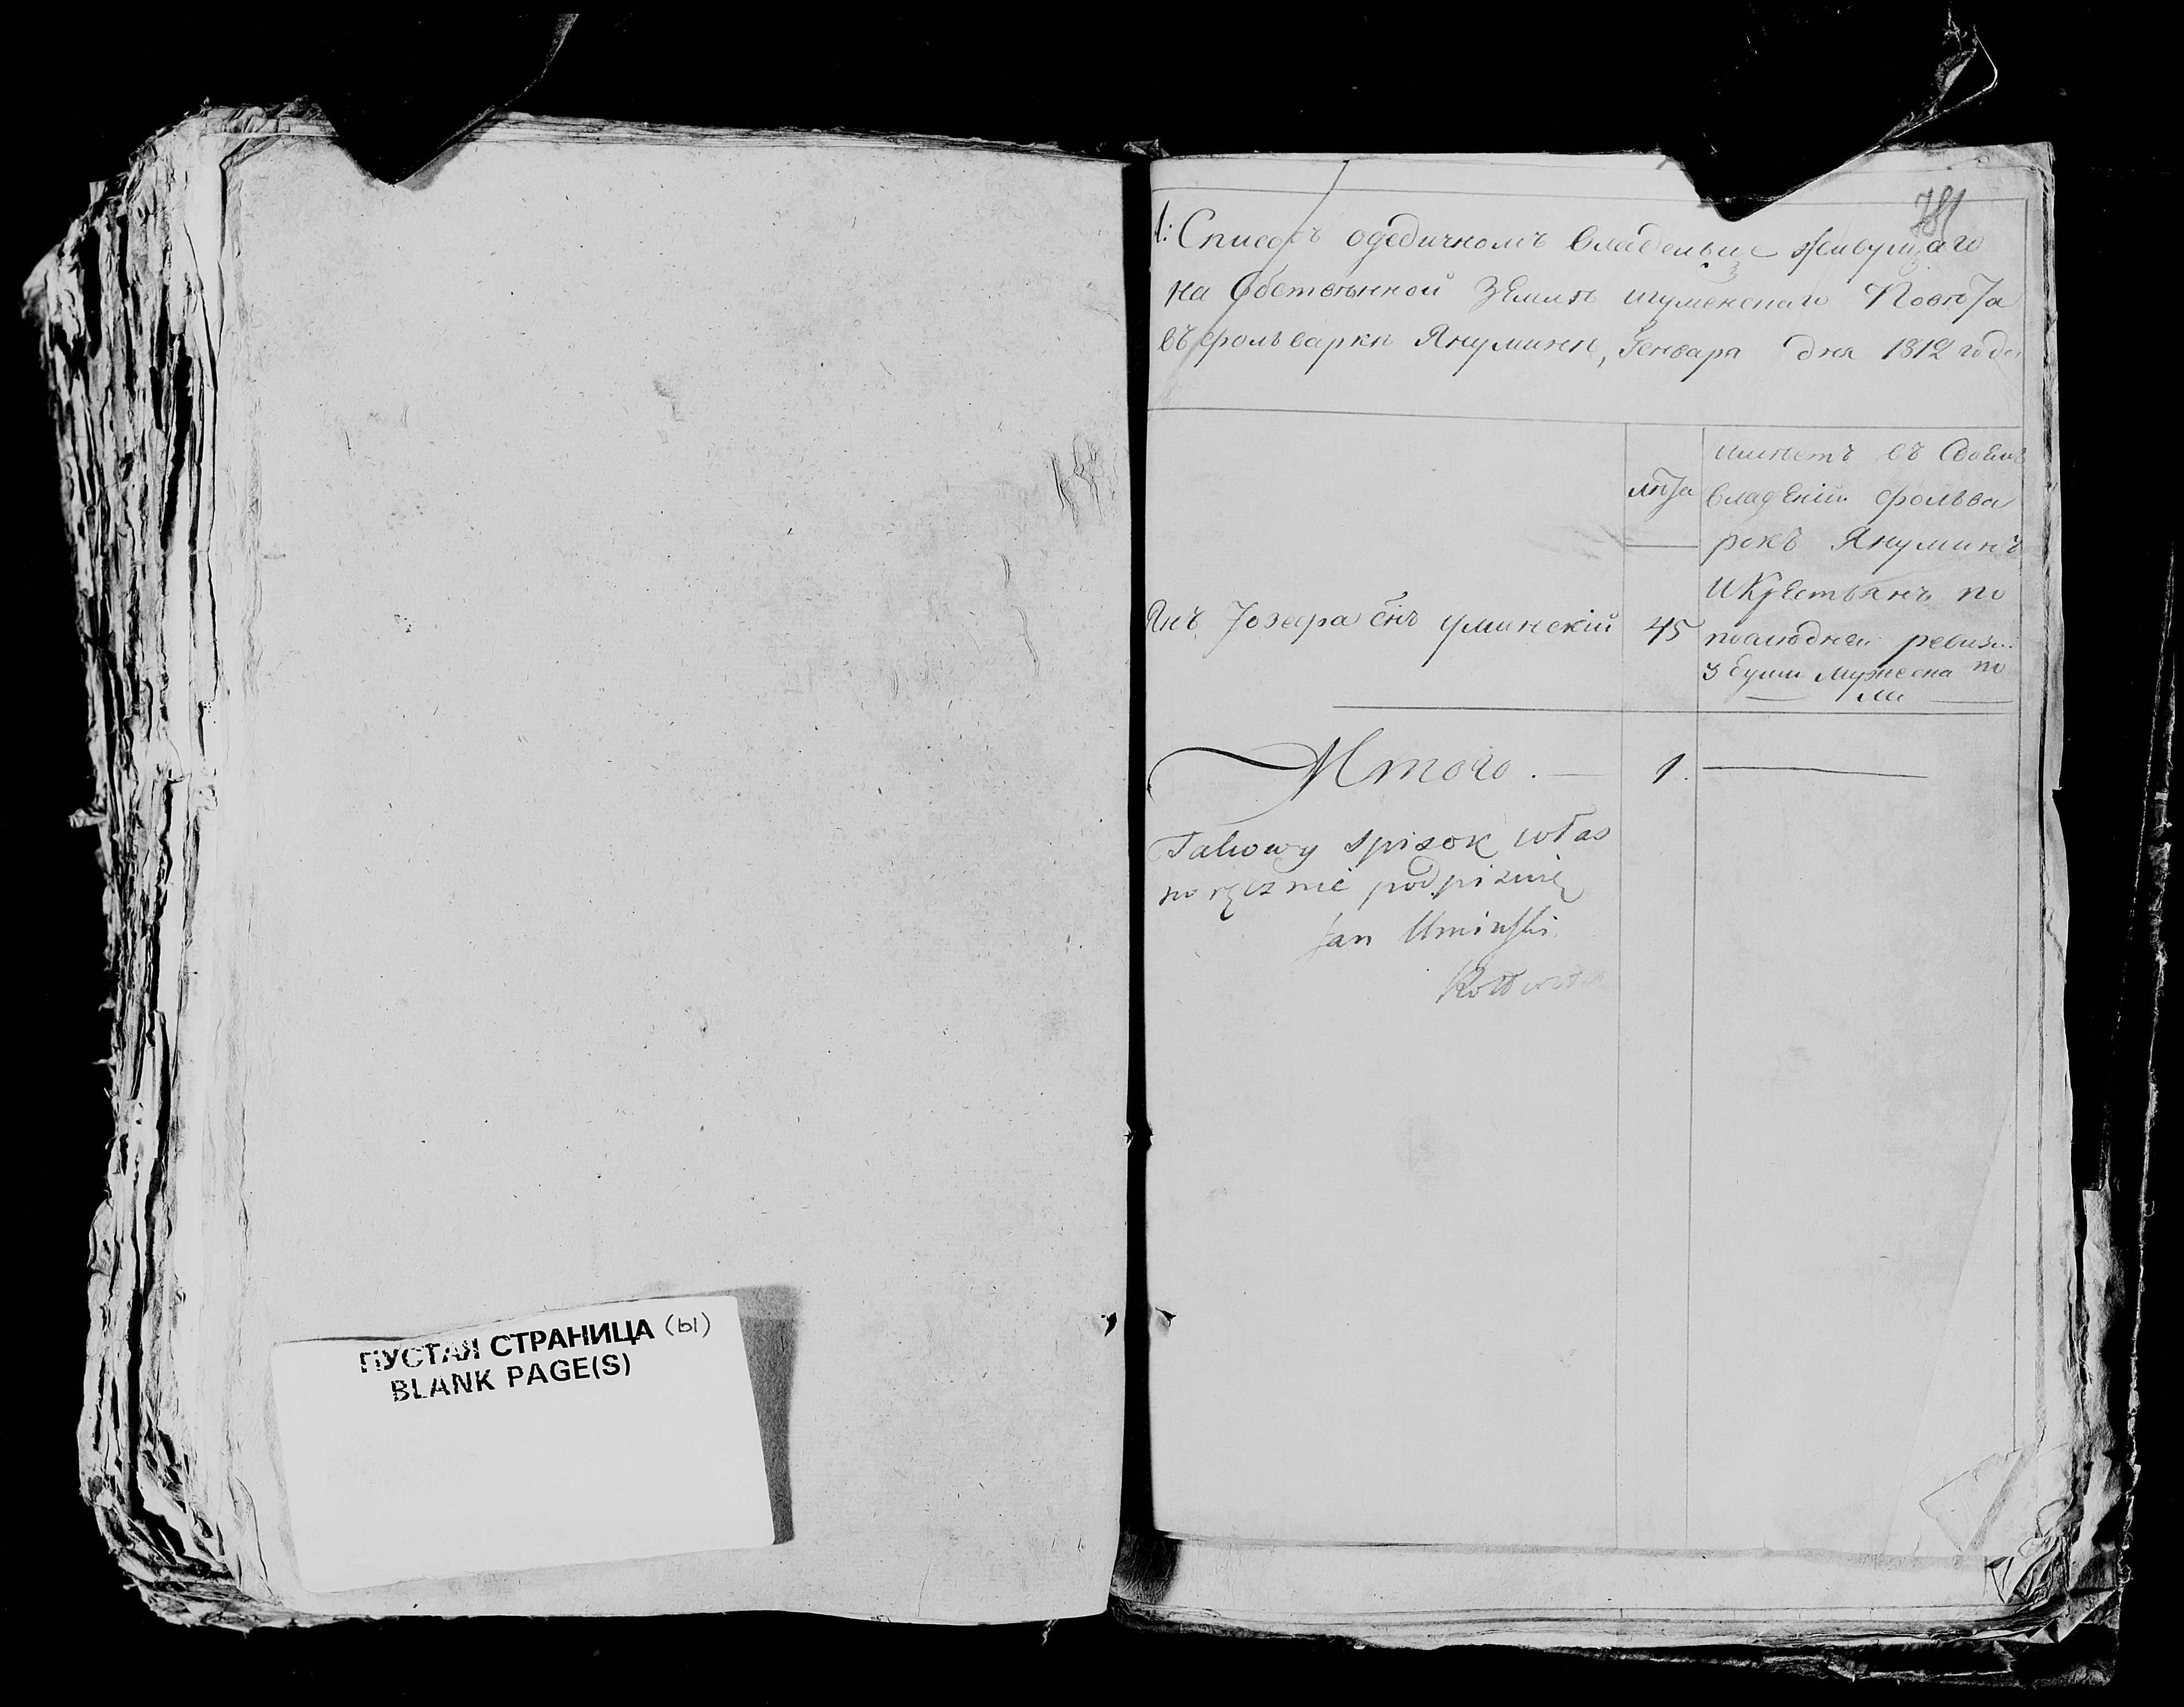 ПУСТАЯ СТРАНИЦА (ы)
BLANK PAGE(S)
781
1: Списокъ одедичномъ владельце живущаго
на Собственной Землѣ игуменскаго Повѣта
въ фольваркѣ Януминѣ, Генваря дня 1812 года
лѣта
имѣетъ въ Своемъ
владеніи фольва
рокъ Януминъ
и Крестьянъ по
послюдней ревизи
3 души мужеска по
ла
Янъ Іозефа снъ уминскій 45
Итого. — 1.
Takowy spisok włas
no ręcznie podpisuię
Jan Uminski